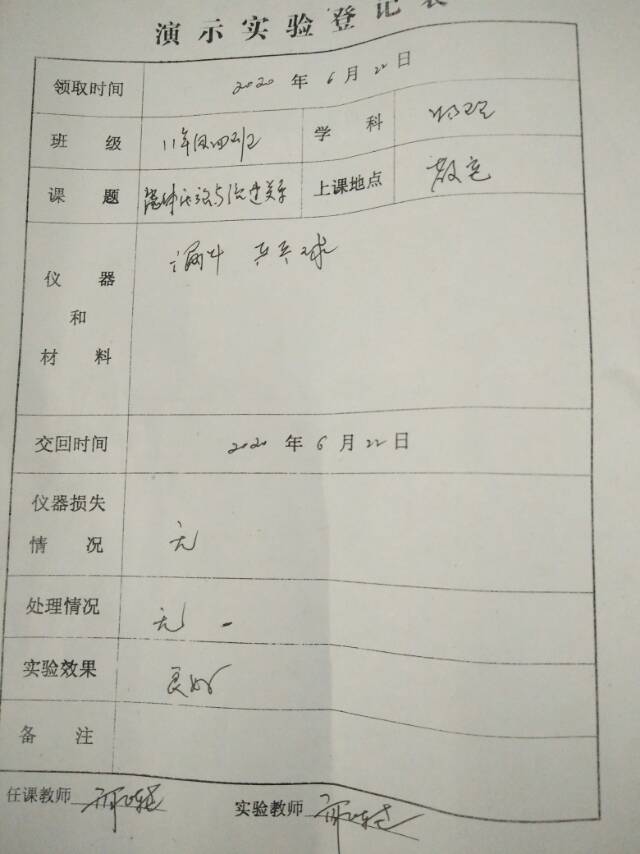 演示实验登记表
领取时间 2020 年 6 月 22 日
班 级 11年级四班 学 科 物理
课 题 流体压强与流速关系 上课地点 教室
仪 器 和 材 料 漏斗 乒乓球
交回时间 2020 年 6 月 22 日
仪器损失
情 况 无
处理情况 无
实验效果 良好
备 注
任课教师 实验教师